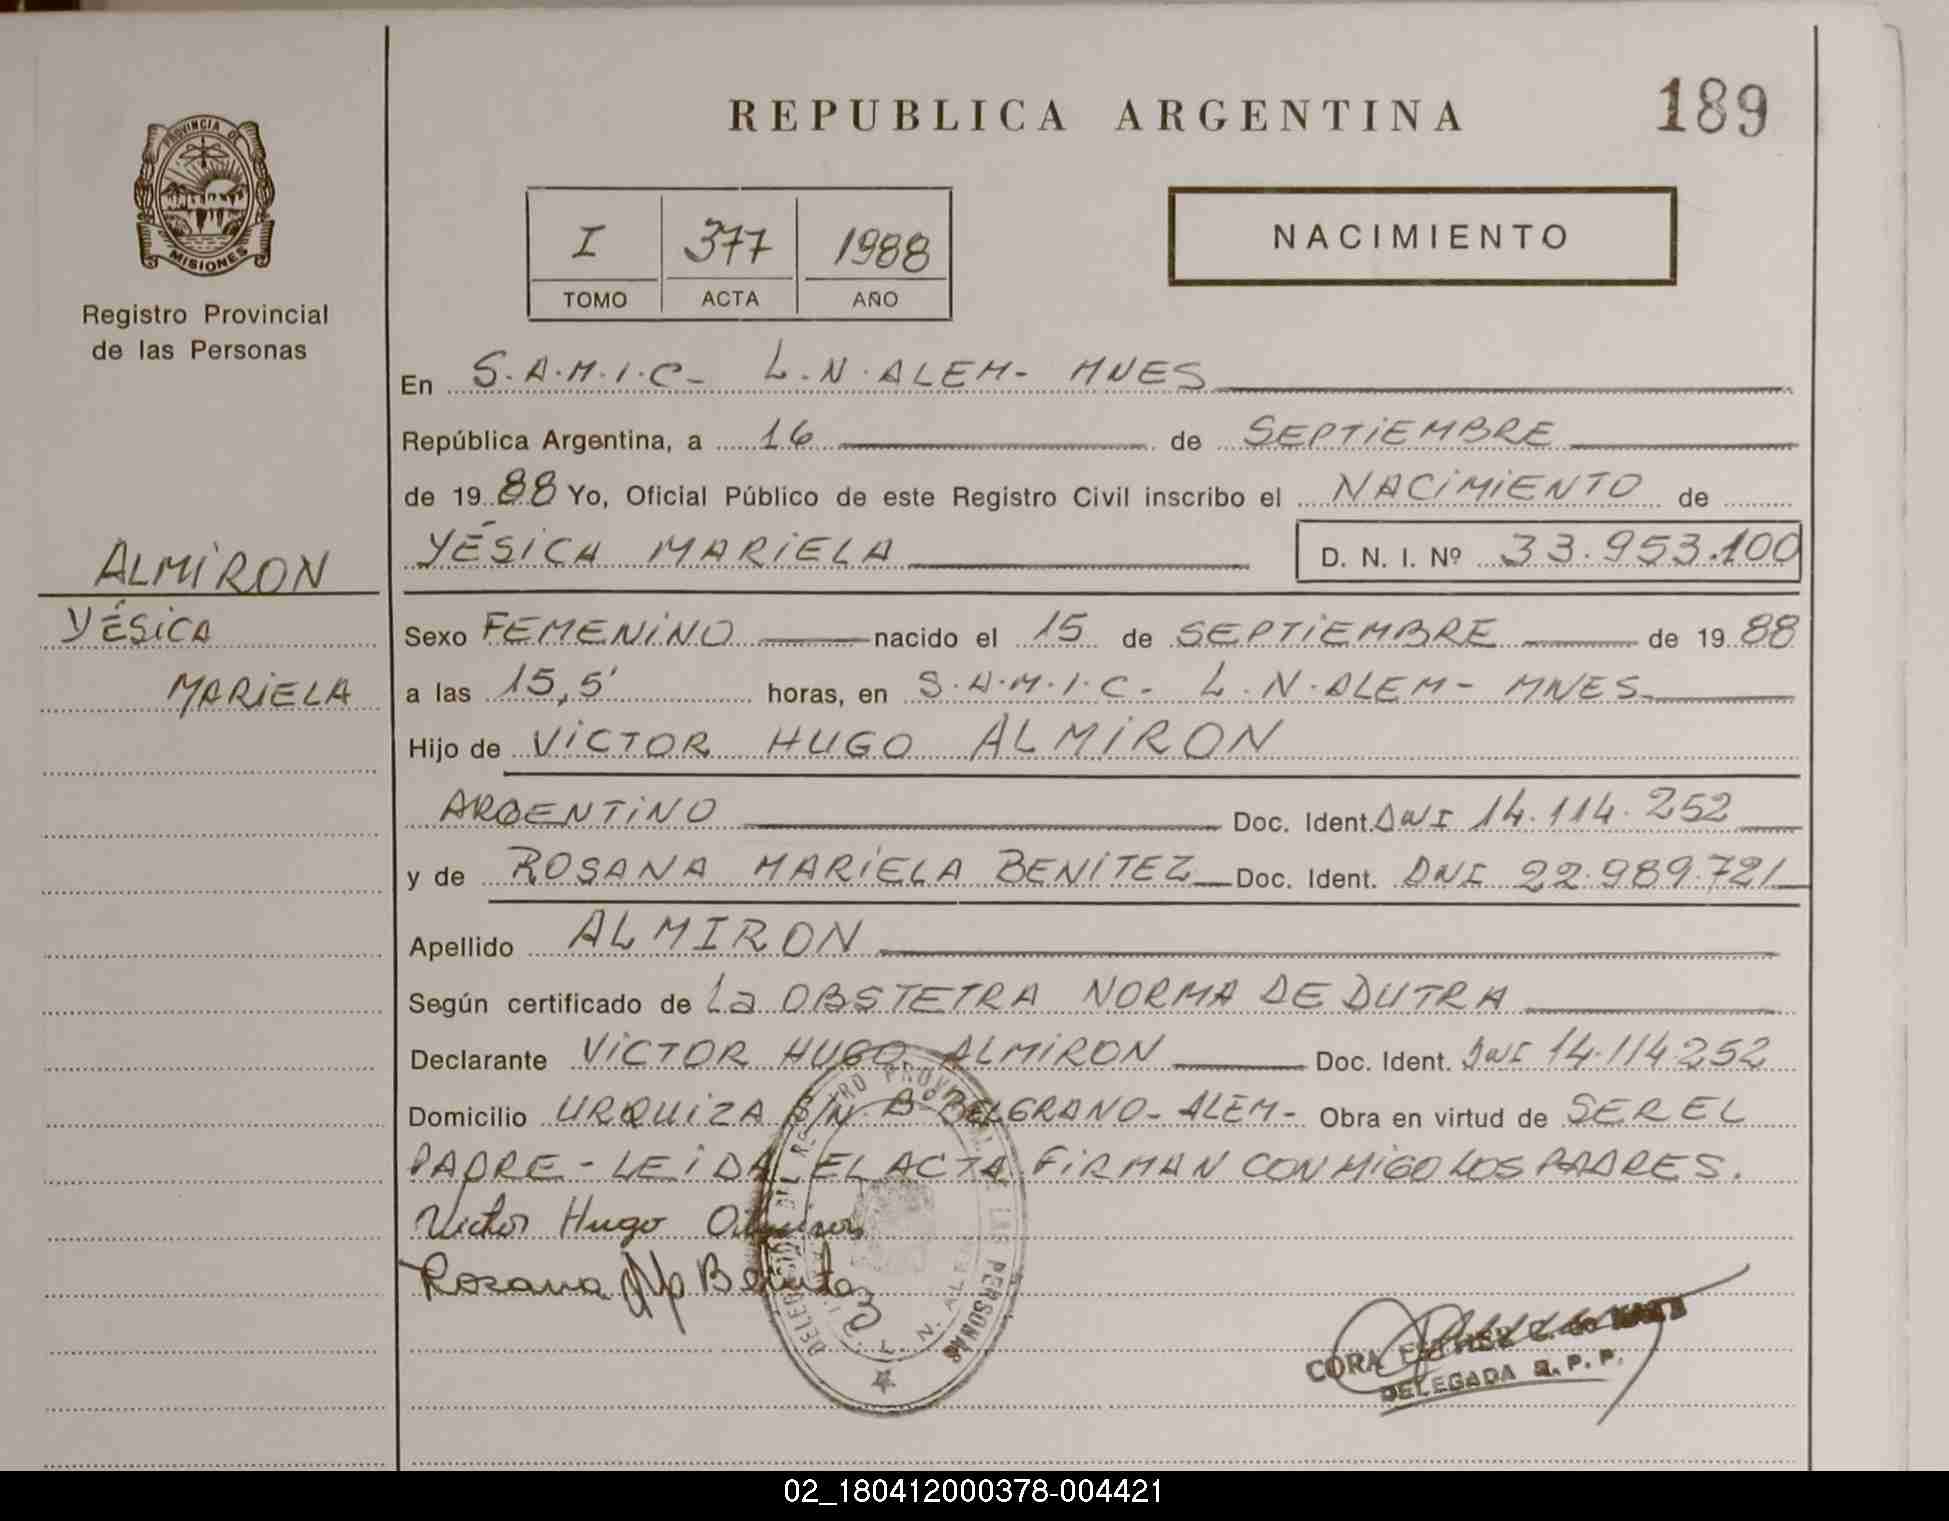 189
REPUBLICA ARGENTINA
PROVINCIA DE
MISIONES
Registro Provincial
de las Personas
I 377 1988
TOMO ACTA AÑO
NACIMIENTO
En S.A.M.I.C- L.N.ALEM- MNES
República Argentina, a 16 de SEPTIEMBRE
de 1988 Yo, Oficial Público de este Registro Civil inscribo el NACIMIENTO de
YÉSICA MARIELA D. N. I. Nº 33.953.100
ALMIRON
YÉSICA
MARIELA
Sexo FEMENINO nacido el 15 de SEPTIEMBRE de 1988
a las 15,5' horas, en S.A.M.I.C- L.N.ALEM- MNES
Hijo de VICTOR HUGO ALMIRON
ARGENTINO Doc. Ident. DNI 14.114.252
y de ROSANA MARIELA BENITEZ Doc. Ident. DNI 22.989.721
Apellido ALMIRON
Según certificado de La OBSTETRA NORMA DE DUTRA
Declarante VICTOR HUGO ALMIRON Doc. Ident. DNI 14.114.252
Domicilio URQUIZA S/N Bº BELGRANO- ALEM- Obra en virtud de SER EL
PADRE - LEIDA EL ACTA FIRMAN CONMIGO LOS PADRES.
Victor Hugo Almiron
Rosana Benitez
L. N. ALEM
CORA ESTHER
DELEGADA R.P.P.
02_180412000378-004421